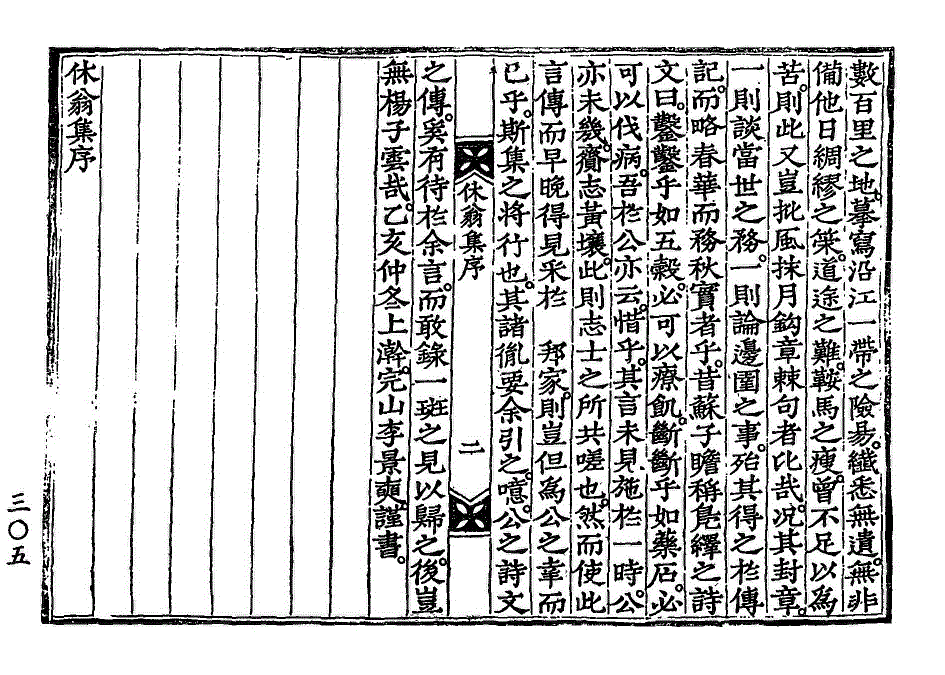 數百里之地。摹寫沿江一帶之險易。纖悉無遺。無非
備他日綢繆之策。道途之難。鞍馬之瘦。曾不足以為
苦。則此又豈批風抹月鉤章棘句者比哉。况其封章。
一則談當世之務。一則論邊圉之事。殆其得之於傳
記。而略春華而務秋實者乎。昔蘇子瞻稱鳧繹之詩
文曰。鑿鑿乎如五穀。必可以療飢。斷斷乎如藥石。必
可以伐病。吾於公亦云。惜乎。其言未見施於一時。公
亦未幾。齎志黃壤。此則志士之所共嗟也。然而使此
言傳而早晚得見采於　邦家。則豈但為公之幸而
已乎。斯集之將行也。其諸胤要余引之。噫。公之詩文
休翁集序
二
之傳。奚有待於余言。而敢錄一斑之見以歸之。後豈
無楊子雲哉。乙亥仲冬上澣。完山李景奭謹書。
休翁集序
三〇五